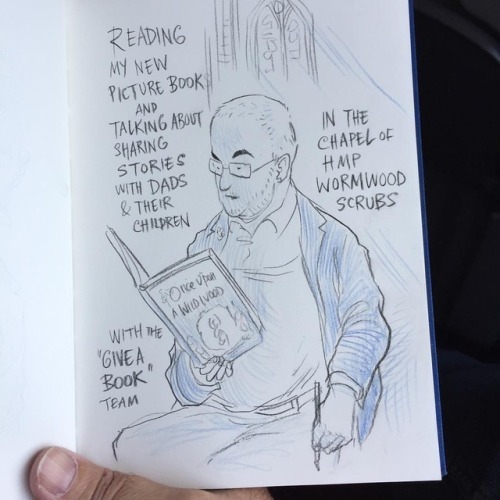 READING
MY NEW
PICTURE BOOK
AND
TALKING ABOUT
SHARING
STORIES
WITH DADS
& THEIR
CHILDREN
IN THE
CHAPEL OF
HMP
WORMWOOD
SCRUBS
Once upon
A WILD WOOD
WITH THE
"GIVE A
BOOK"
TEAM